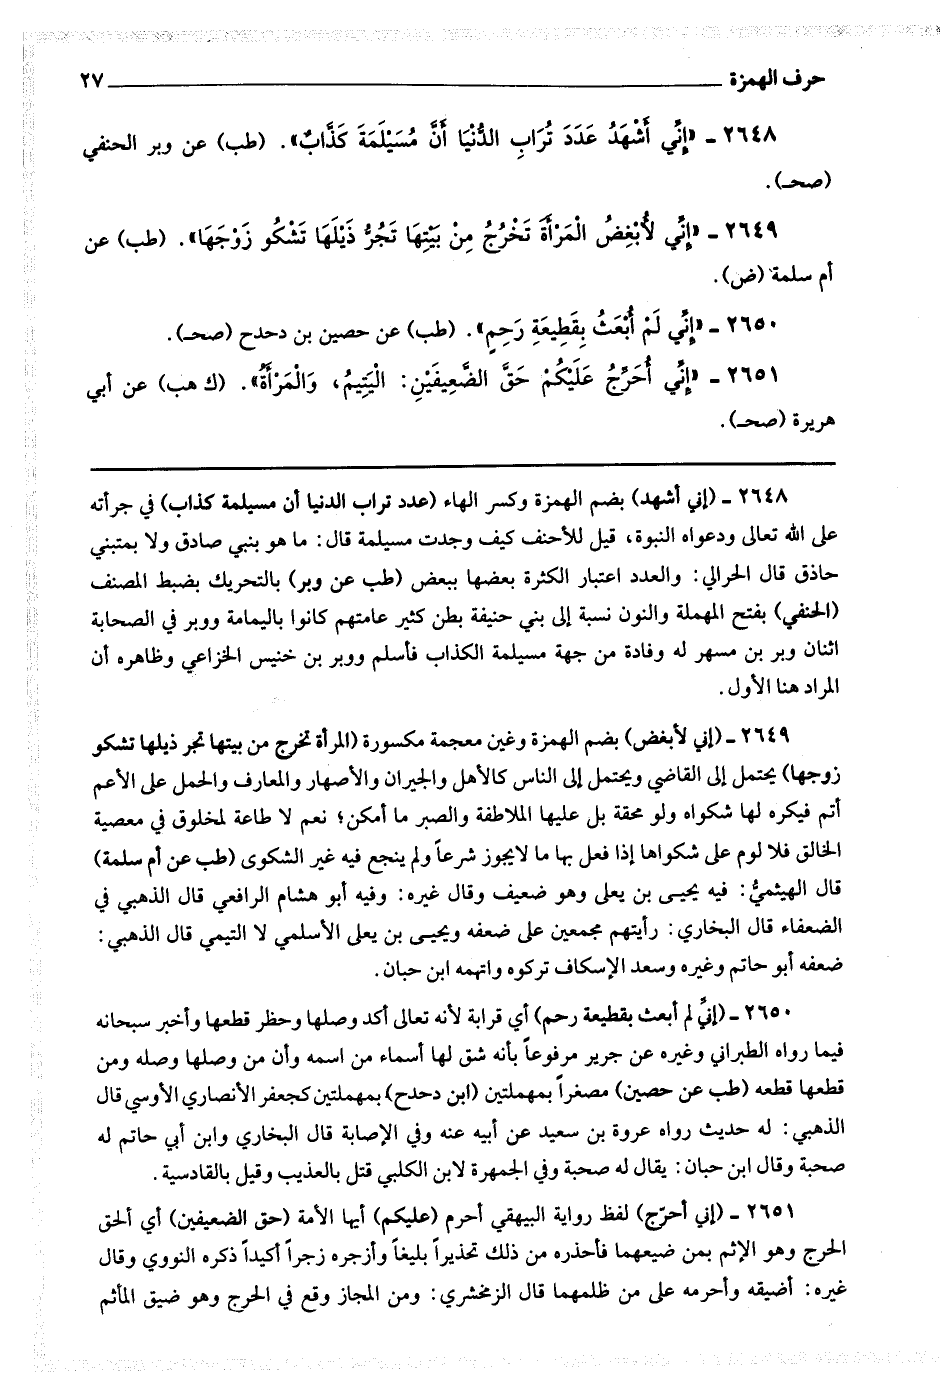 حرف الهمزة ــــــــــــــــــــــــــــــــــــ ٢٧
٢٦٤٨ ـ «إِنِّي أَشْهَدُ عَدَدَ تُرَابِ الدُّنْيَا أَنَّ مُسَيْلَمَةَ كَذَّابٌ». (طب) عن وبر الحنفي
(صحـ).
٢٦٤٩ ـ «إِنِّي لأُبْغِضُ الْمَرْأَةَ تَخْرُجُ مِنْ بَيْتِهَا تَجُرُّ ذَيْلَهَا تَشْكُو زَوْجَهَا». (طب) عن
أم سلمة (ض).
٢٦٥٠ ـ «إِنِّي لَمْ أُبْعَثْ بِقَطِيعَةِ رَحِمٍ». (طب) عن حصين بن دحدح (صحـ).
٢٦٥١ ـ «إِنِّي أُحَرِّجُ عَلَيْكُمْ حَقَّ الضَّعِيفَيْنِ: الْيَتِيمُ، وَالْمَرْأَةُ». (ك هب) عن أبي
هريرة (صحـ).
٢٦٤٨ ـ (إني أشهد) بضم الهمزة وكسر الهاء (عدد تراب الدنيا أن مسيلمة كذاب) في جرأته
على الله تعالى ودعواه النبوة، قيل للأحنف كيف وجدت مسيلمة قال: ما هو بنبي صادق ولا بمتبني
حاذق قال الحرالي: والعدد اعتبار الكثرة بعضها ببعض (طب عن وبر) بالتحريك بضبط المصنف
(الحنفي) بفتح المهملة والنون نسبة إلى بني حنيفة بطن كثير عامتهم كانوا باليمامة ووبر في الصحابة
اثنان وبر بن مسهر له وفادة من جهة مسيلمة الكذاب فأسلم ووبر بن خنيس الخزاعي وظاهره أن
المراد هنا الأول.
٢٦٤٩ ـ (إني لأبغض) بضم الهمزة وغين معجمة مكسورة (المرأة تخرج من بيتها تجر ذيلها تشكو
زوجها) يحتمل إلى القاضي ويحتمل إلى الناس كالأهل والجيران والأصهار والمعارف والحمل على الأعم
أتم فيكره لها شكواه ولو محقة بل عليها الملاطفة والصبر ما أمكن؛ نعم لا طاعة لمخلوق في معصية
الخالق فلا لوم على شكواها إذا فعل بها ما لايجوز شرعاً ولم ينجع فيه غير الشكوى (طب عن أم سلمة)
قال الهيثميُّ: فيه يحيـى بن يعلى وهو ضعيف وقال غيره: وفيه أبو هشام الرافعي قال الذهبي في
الضعفاء قال البخاري: رأيتهم مجمعين على ضعفه ويحيـى بن يعلى الأسلمي لا التيمي قال الذهبي:
ضعفه أبو حاتم وغيره وسعد الإسكاف تركوه واتهمه ابن حبان.
٢٦٥٠ ـ (إنيِّ لم أبعث بقطيعة رحم) أي قرابة لأنه تعالى أكد وصلها وحظر قطعها وأخبر سبحانه
فيما رواه الطبراني وغيره عن جرير مرفوعاً بأنه شق لها أسماء من اسمه وأن من وصلها وصله ومن
قطعها قطعه (طب عن حصين) مصغراً بمهملتين (ابن دحدح) بمهملتين كجعفر الأنصاري الأوسي قال
الذهبي: له حديث رواه عروة بن سعيد عن أبيه عنه وفي الإصابة قال البخاري وابن أبي حاتم له
صحبة وقال ابن حبان: يقال له صحبة وفي الجمهرة لابن الكلبي قتل بالعذيب وقيل بالقادسية.
٢٦٥١ ـ (إني أحرّج) لفظ رواية البيهقي أحرم (عليكم) أيها الأمة (حق الضعيفين) أي ألحق
الحرج وهو الإثم بمن ضيعهما فأحذره من ذلك تحذيراً بليغاً وأزجره زجراً أكيداً ذكره النووي وقال
غيره: أضيقه وأحرمه على من ظلمهما قال الزمخشري: ومن المجاز وقع في الحرج وهو ضيق المأثم